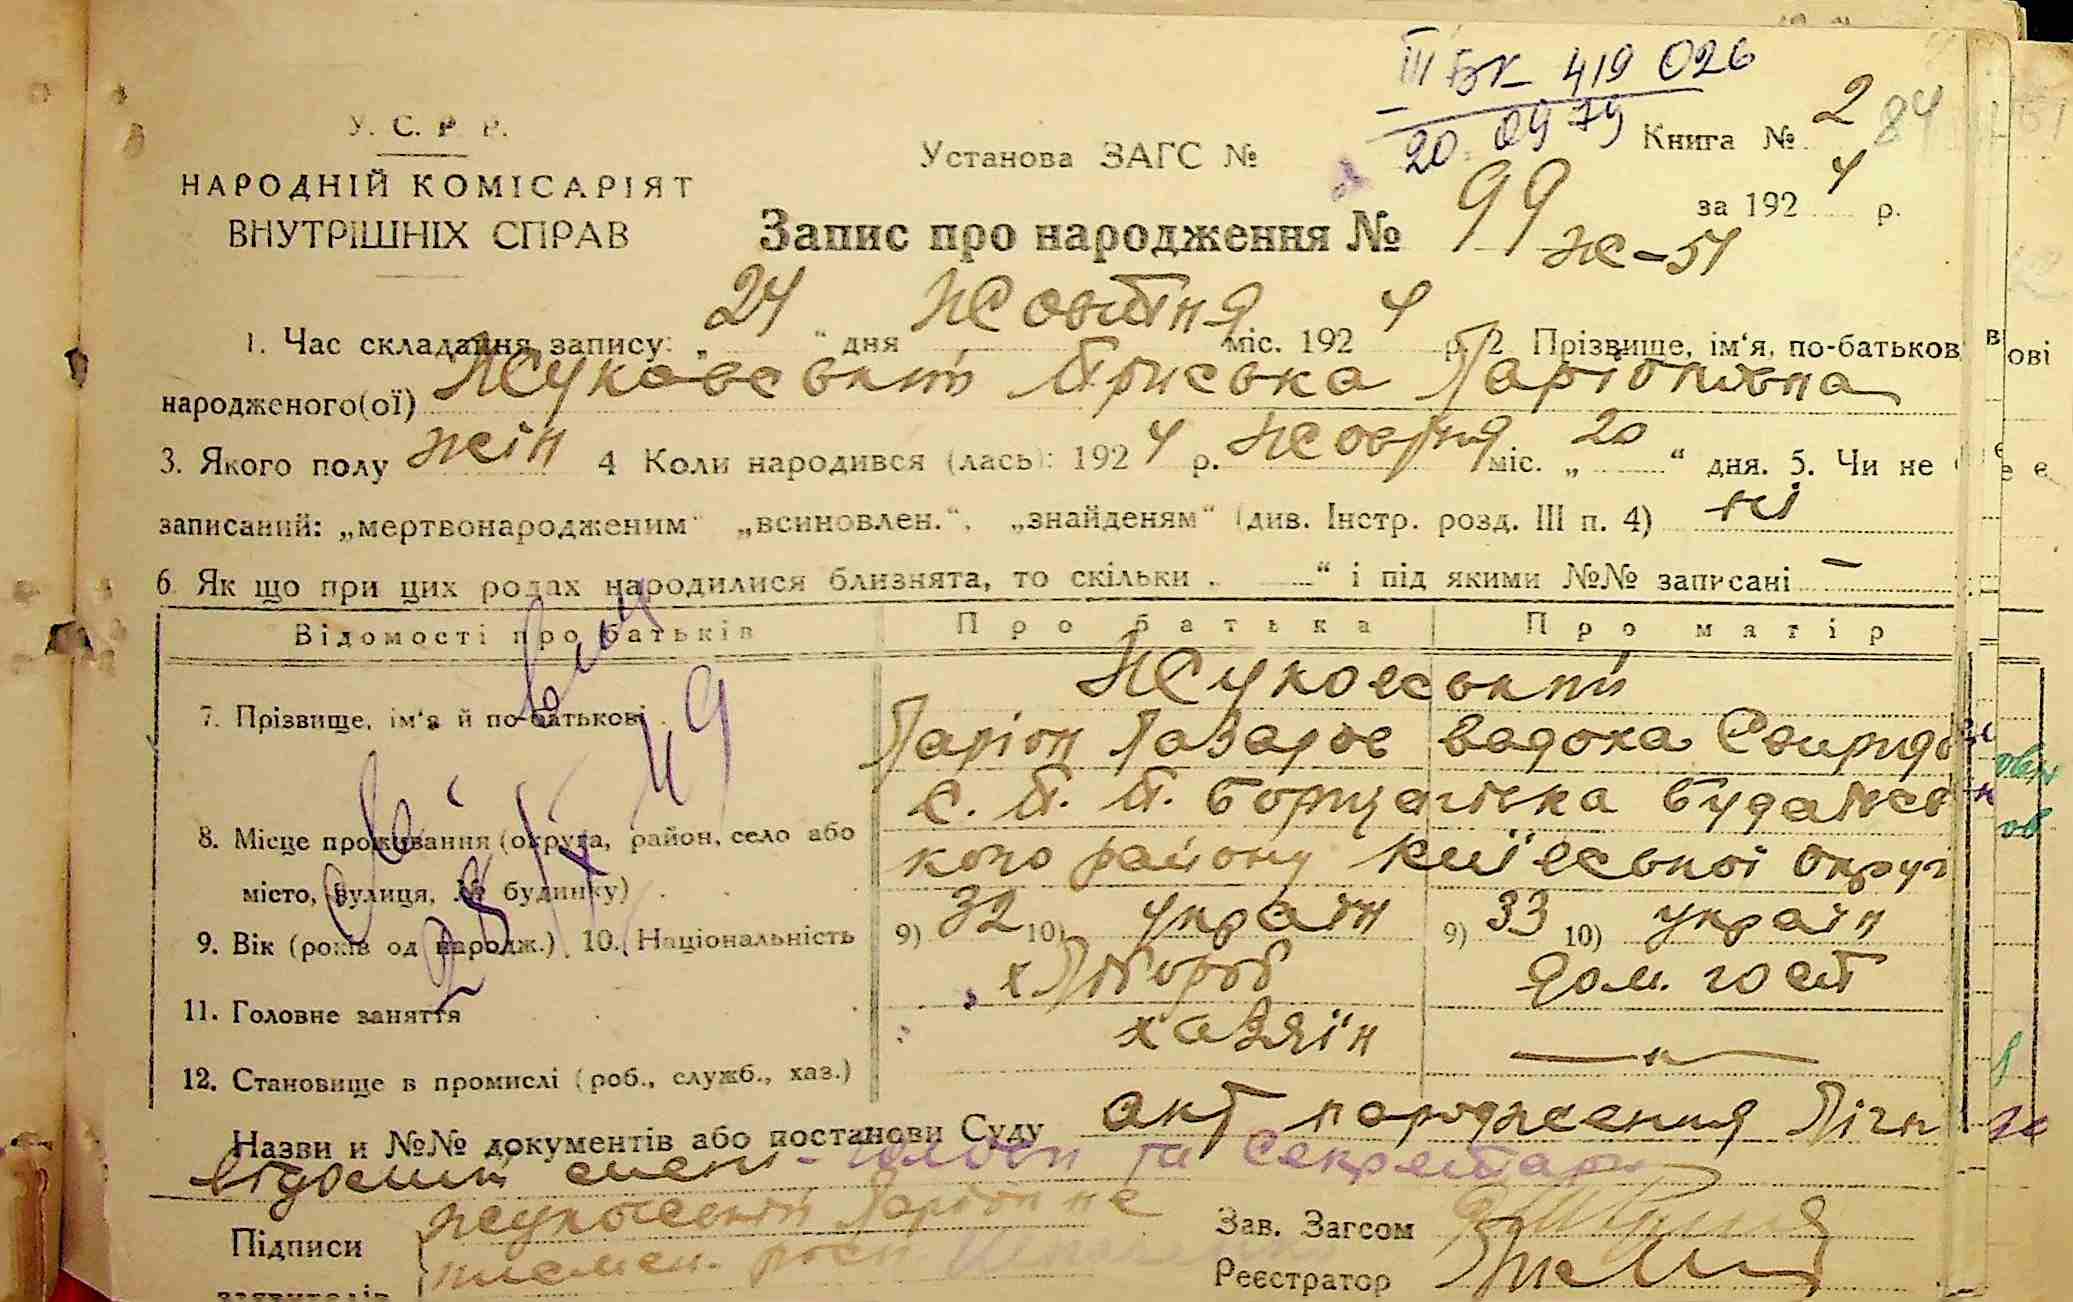 III БК 419 026
20 09 79
Книга № 2 84
У. С. Р. Р.
Установа ЗАГС №
НАРОДНІЙ КОМІСАРІЯТ
за 192 4 р.
ВНУТРІШНІХ СПРАВ
Запис про народження № 99
Ж-51
1. Час складання запису: „ 24 “ дня Жовтня міс. 192 4 р. 2 Прізвище, ім‘я, по-батьков
народженого(ої) Жуковський Приська Ларіонівна
3. Якого полу жін 4 Коли народився (лась): 192 4 р. Жовтня міс. „ 20 “ дня. 5. Чи не є
записаний: „мертвонародженим“ „всиновлен.“, „знайденям“ (див. Інстр. розд. III п. 4) ні
6 Як що при цих родах народилися близнята, то скільки “ і під якими №№ записані —
Відомості про батьків Про батька Про матір
7. Прізвище, ім‘я й по-батькові Жуковський
Ларіон Лазаров Свиридо
8. Місце проживання (округа, район, село або с. П. П. Борщагівка Будаївсь
місто, вулиця, № будинку) кого району Київської округ
9. Вік (років од народж.) 10. Національність 9) 32 10) україн 9) 33 10) україн
11. Головне заняття хлібороб дом. госп
12. Становище в промислі (роб., служб., хаз.) хазяїн — " —
Назви и №№ документів або постанови Суду акт народження
голови та секретаря
Підписи Жуковський Ларіон не
Зав. Загсом
письмен.
Реєстратор